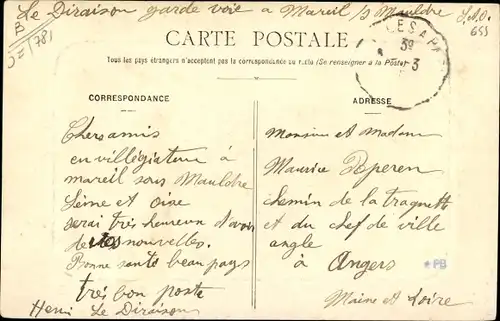 Le Diraison garde voie a Mareil s/ Mauldre S.N.O.
B
J=(78)
655
CARTE POSTALE
Tous les pays étrangers n'acceptent pas la correspondance au recto (Se renseigner à la Poste)
39
3
CORRESPONDANCE
Chers amis
en villégiature à
mareil sous Mauldre
Seine et Oise
serai très heureux d'avoir
de vos nouvelles.
Bonne santé beau pays
très bon poste
Henri Le Diraison
ADRESSE
Monsieur et Madame
Maurice
chemin de la
et du chef de ville
angle
à Angers
Maine et Loire
PB